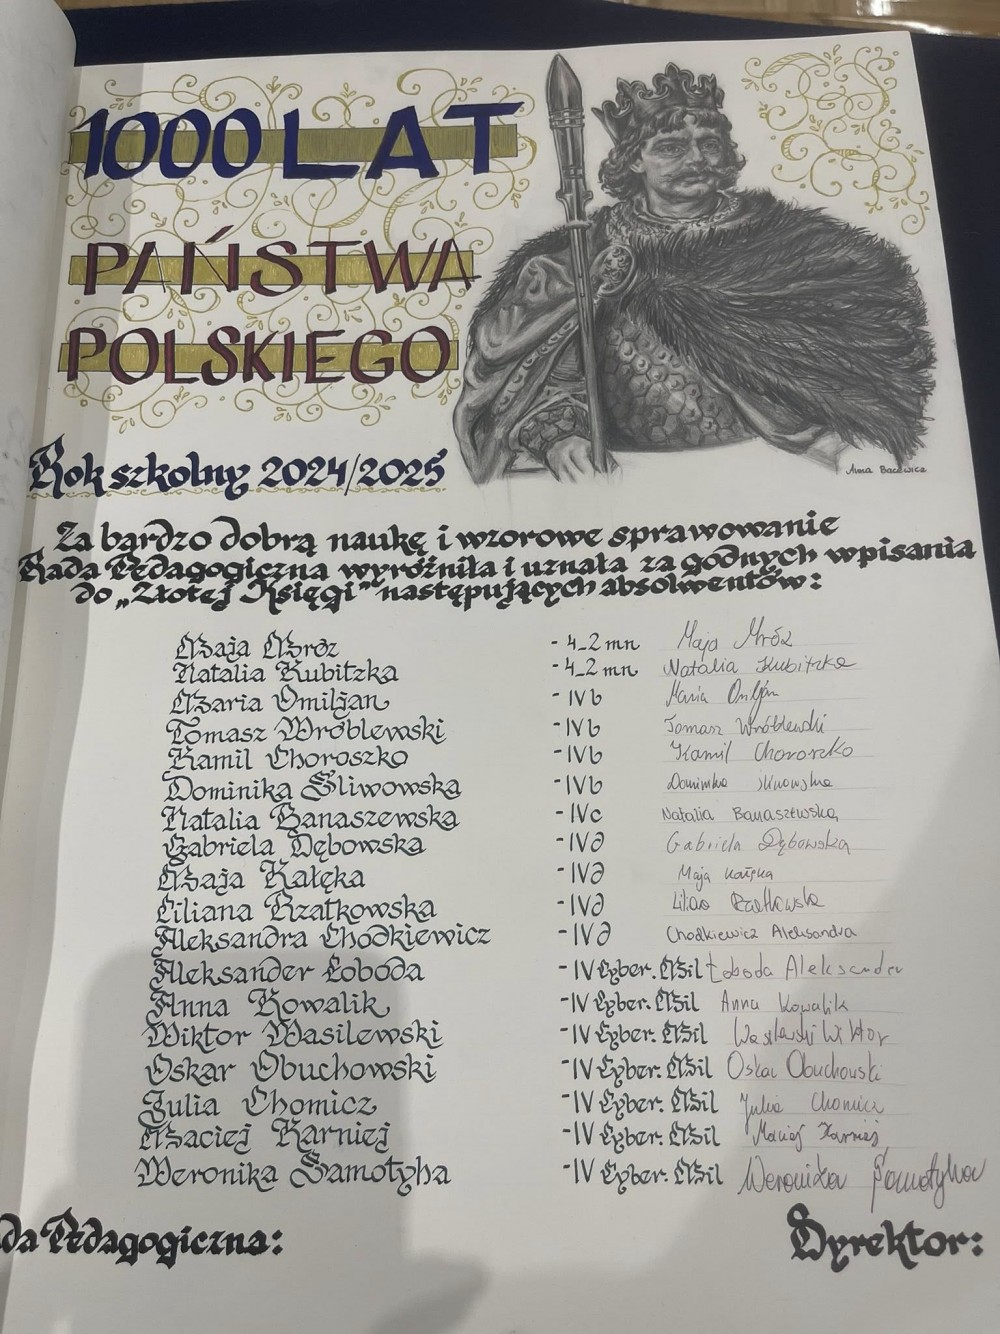 1000 LAT
PAŃSTWA
POLSKIEGO
Anna Bacewicz
Rok szkolny 2024/2025
Za bardzo dobrą naukę i wzorowe sprawowanie
Rada Pedagogiczna wyróżniła i uznała za godnych wpisania
do „Złotej Księgi” następujących absolwentów:
Maja Mroz - 4_2 mn Maja Mróz
Natalia Kubitzka - 4_2 mn Natalia Kubitzka
Maria Omiljan - IV b Maria Omiljan
Tomasz Wróblewski - IV b Tomasz Wróblewski
Kamil Choroszko - IV b Kamil Choroszko
Dominika Śliwowska - IV b Dominika Śliwowska
Natalia Banaszewska - IV c Natalia Banaszewska
Gabriela Dębowska - IV d Gabriela Dębowska
Maja Kałęka - IV d Maja Kałęka
Liliana Rzatkowska - IV d Liliana Rzatkowska
Aleksandra Chodkiewicz - IV d Chodkiewicz Aleksandra
Aleksander Łoboda - IV Cyber. Mil Łoboda Aleksander
Anna Kowalik - IV Cyber. Mil Anna Kowalik
Wiktor Wasilewski - IV Cyber. Mil Wasilewski Wiktor
Oskar Obuchowski - IV Cyber. Mil Oskar Obuchowski
Julia Chomicz - IV Cyber. Mil Julia Chomicz
Maciej Karniej - IV Cyber. Mil Maciej Karniej
Weronika Samotyha - IV Cyber. Mil Weronika Samotyha
da Pedagogiczna: Dyrektor: